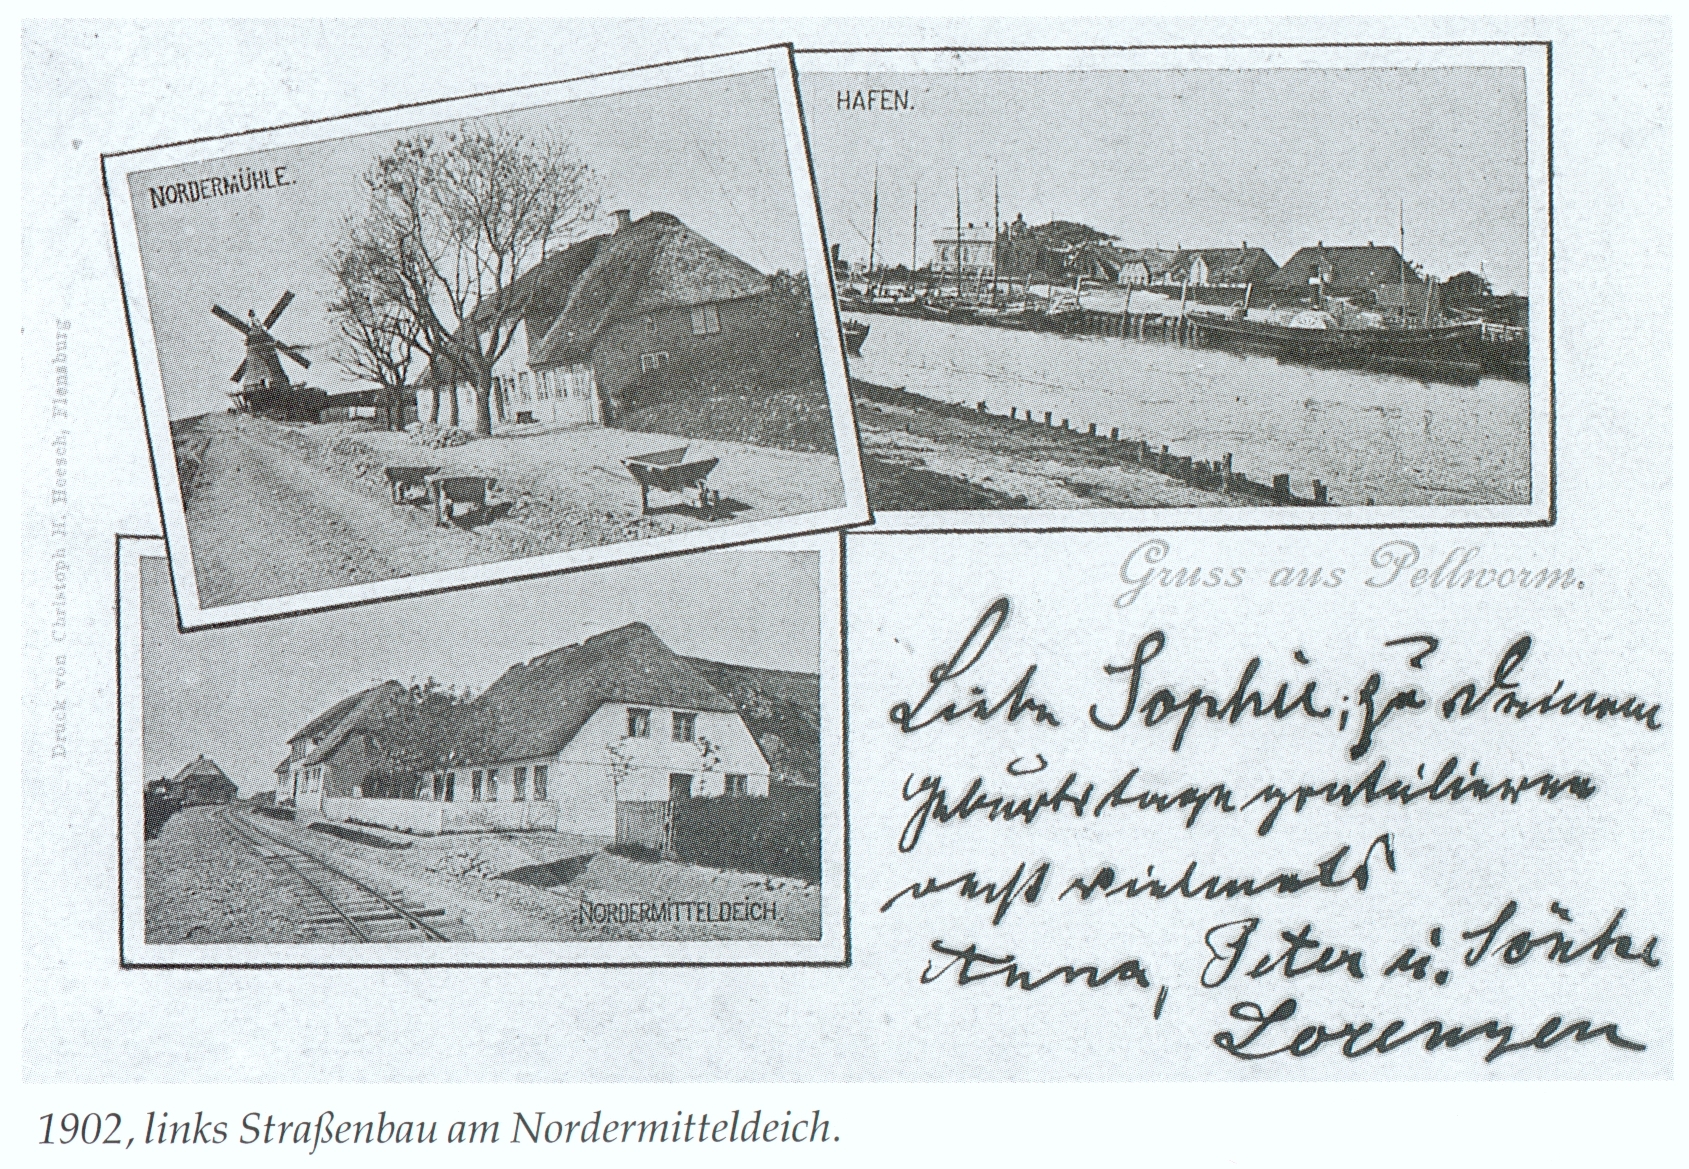 NORDERMÜHLE.
HAFEN.
Druck von Christoph H. Heesch, Flensburg
Gruss aus Pellworm.
Liebe Sophie, zu Deinem
Geburtstage gratulieren
recht vielmals
Anna, Peter u. Sönke
Lorenzen
NORDERMITTELDEICH.
1902, links Straßenbau am Nordermitteldeich.